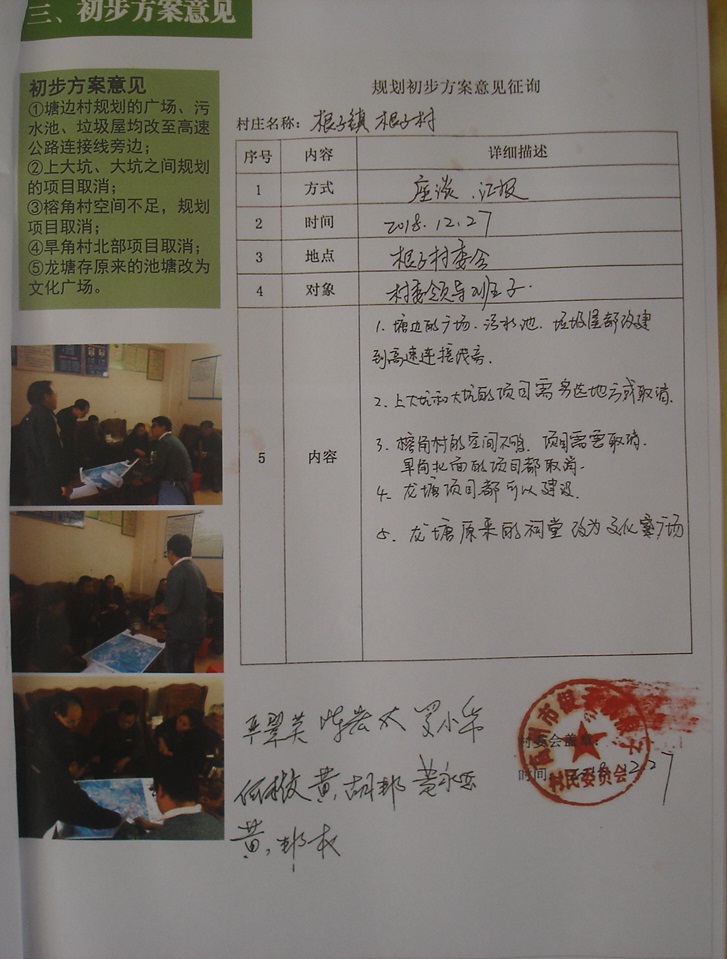 三、初步方案意见
初步方案意见
①塘边村规划的广场、污
水池、垃圾屋均改至高速
公路连接线旁边；
②上大坑、大坑之间规划
的项目取消；
③榕角村空间不足，规划
项目取消；
④旱角村北部项目取消；
⑤龙塘存原来的池塘改为
文化广场。
规划初步方案意见征询
村庄名称：根子镇 根子村
序号 内容 详细描述
1 方式 座谈、汇报
2 时间 2018.12.27
3 地点 根子村委会
4 对象 村委领导班子.
5 内容
1. 塘边的广场、污水池、垃圾屋都改建
到高速连接线旁.
2. 上大坑和大坑的项目需另选地方或取消.
3. 榕角村的空间不够，项目需要取消.
旱岗北面的项目都取消.
4. 龙塘项目都可以建设.
5. 龙塘原来的祠堂改为文化广场
村委会盖章：
时间：
村民委员会